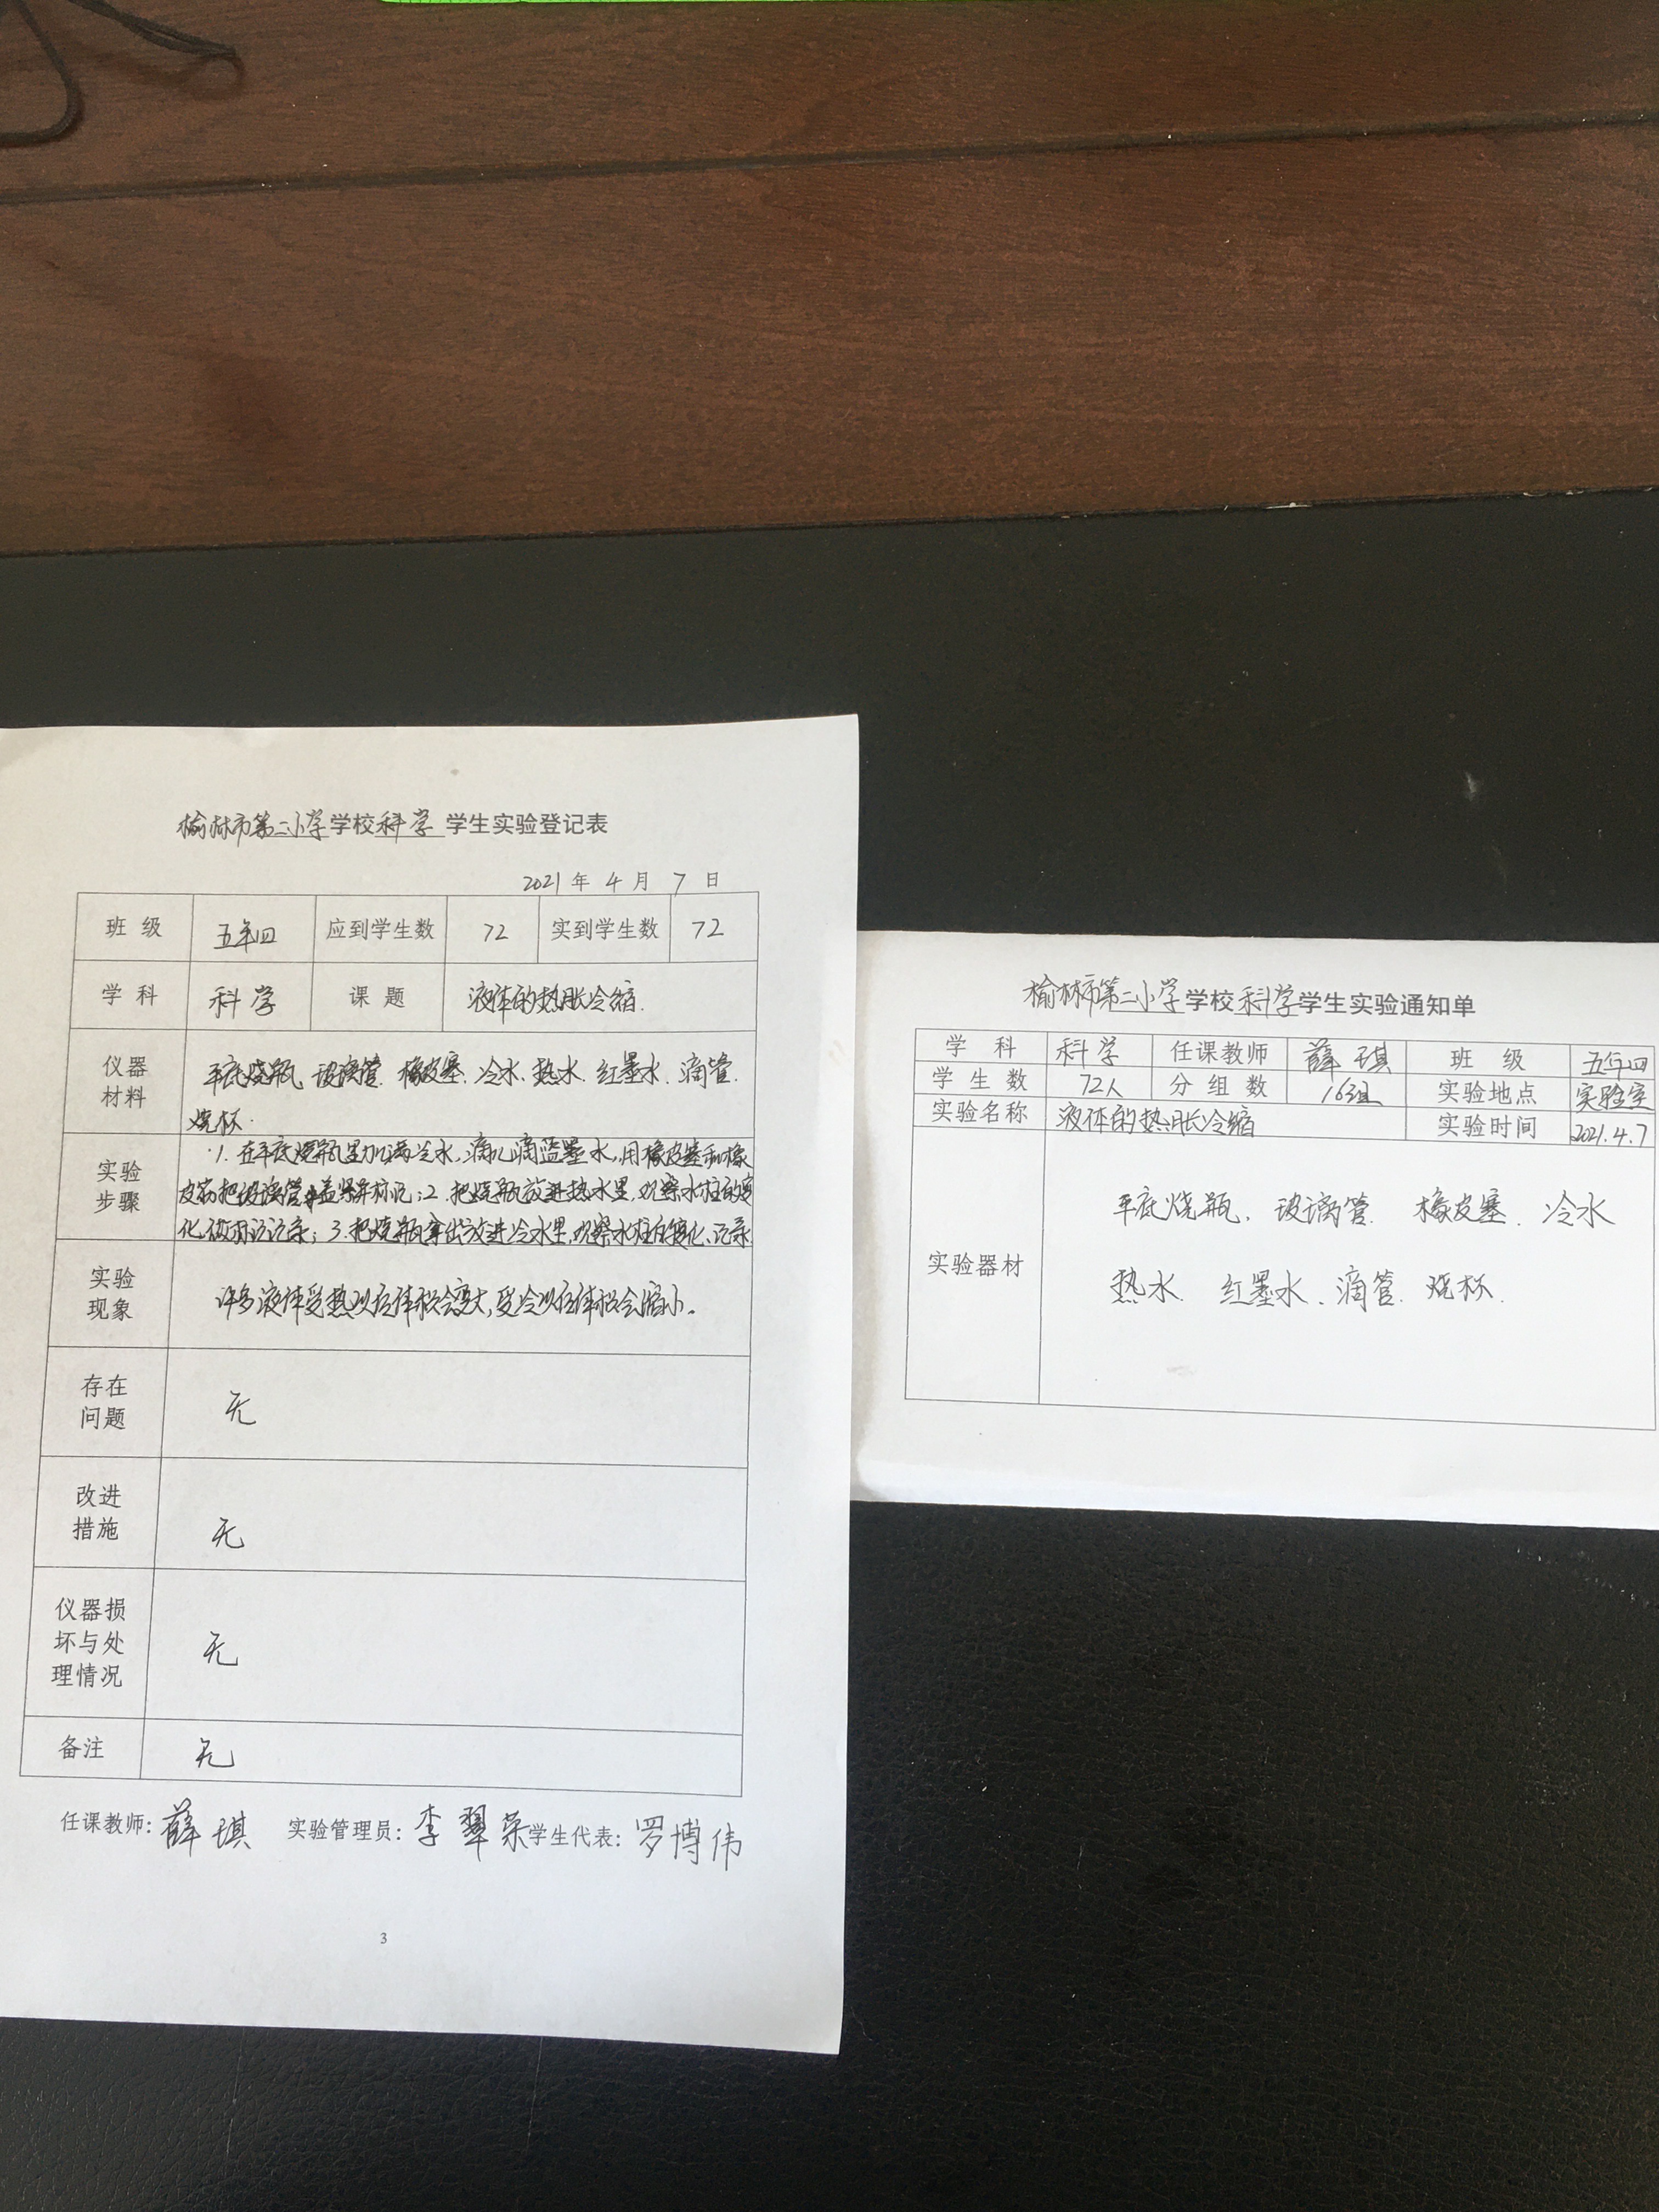 榆林市第二小学学校科学 学生实验登记表
2021 年 4 月 7 日
班 级 五年四 应到学生数 72 实到学生数 72
学 科 科学 课 题 液体的热胀冷缩.
仪器
材料
平底烧瓶 玻璃管. 橡皮塞. 冷水. 热水. 红墨水. 滴管.
烧杯.
实验
步骤
1. 在平底烧瓶里加满冷水,滴几滴蓝墨水,用橡皮塞和橡
皮筋把玻璃管 盖紧并标记;2. 把烧瓶放进热水里,观察水柱的变
化,做标记记录;3.把烧瓶拿出放进冷水里,观察水柱的变化、记录
实验
现象
许多液体受热以后体积会变大,受冷以后体积会缩小。
存在
问题
无
改进
措施
无
仪器损
坏与处
理情况
无
备注 无
任课教师: 薛琪 实验管理员: 李翠荣 学生代表: 罗博伟
3
榆林市第二小学学校科学学生实验通知单
学 科 科学 任课教师 薛琪 班 级 五年四
学 生 数 72人 分 组 数 16组 实验地点 实验室
实验名称 液体的热胀冷缩 实验时间 2021.4.7
实验器材
平底烧瓶. 玻璃管. 橡皮塞. 冷水
热水. 红墨水. 滴管. 烧杯.